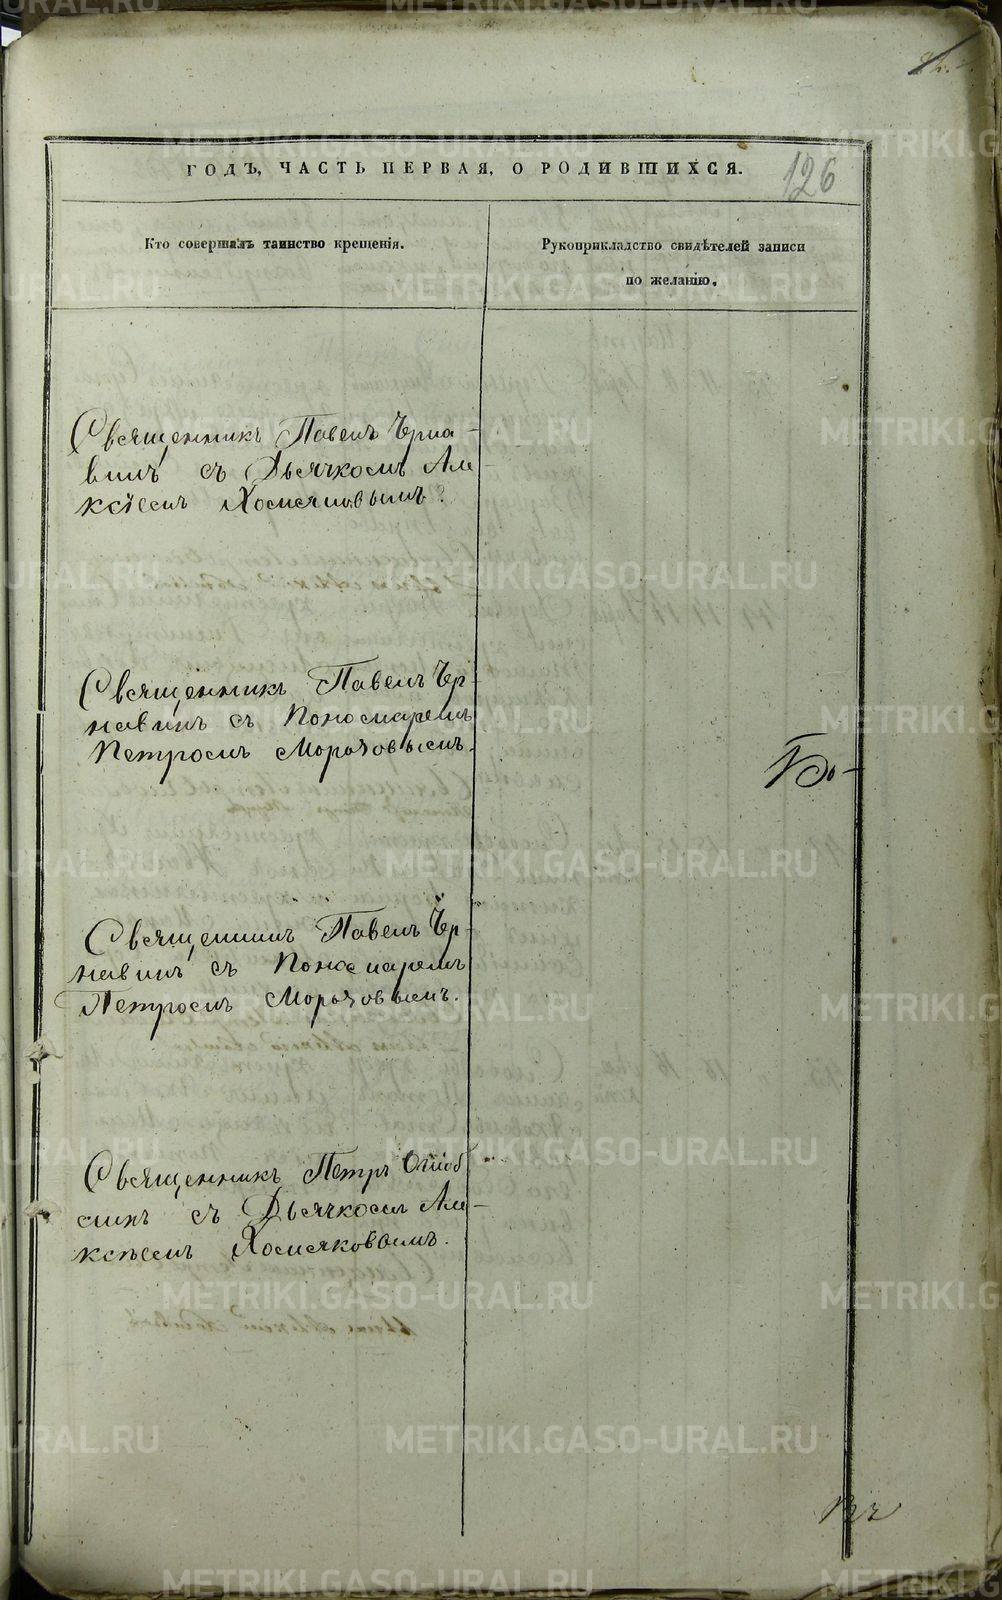 ГОДЪ, ЧАСТЬ ПЕРВАЯ, О РОДИВШИХСЯ.
126
Кто совершалъ таинство крещенія.
Рукоприкладство свидѣтелей записи
по желанію.
Священникъ Павелъ Черна-
винъ съ Дьячкомъ Але-
ксѣемъ Хомяковымъ
Священникъ Павелъ Чер-
навинъ съ Пономаремъ
Петромъ Морозовымъ.
Священникъ Павелъ Чер-
навинъ съ Пономаремъ
Петромъ Морозовымъ.
Священникъ Петръ
съ Дьячкомъ Але-
ксѣемъ Хомяковымъ.
METRIKI.GASO-URAL.RU